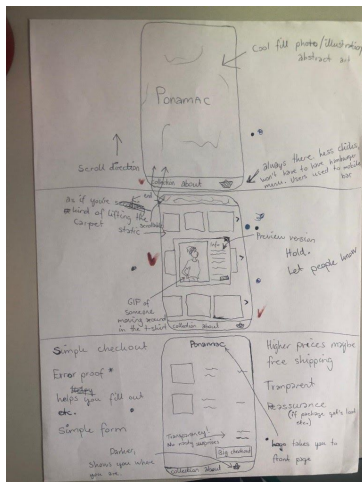 Cool full photo/illustration
abstract art
PONAMAC
Scroll direction
Collection about
always there. Less clicks,
won't have to have hamburger
menu. Users used to mobile
bar
As if you're
kind of lifting the
carpet
static
Info
Preview version
Hold.
Let people know
GIF of
someone
moving around
in the t-shirt
Collection About
Simple checkout
Error proof
helps you fill out
etc.
Simple form
Darker,
Shows you where
you are.
Ponamac
Transparency!
no nasty surprises
Big checkout
Collection About
Higher prices maybe
free shipping
Transparent
Reassurance
(if package gets lost
etc.)
Logo takes you to
front page